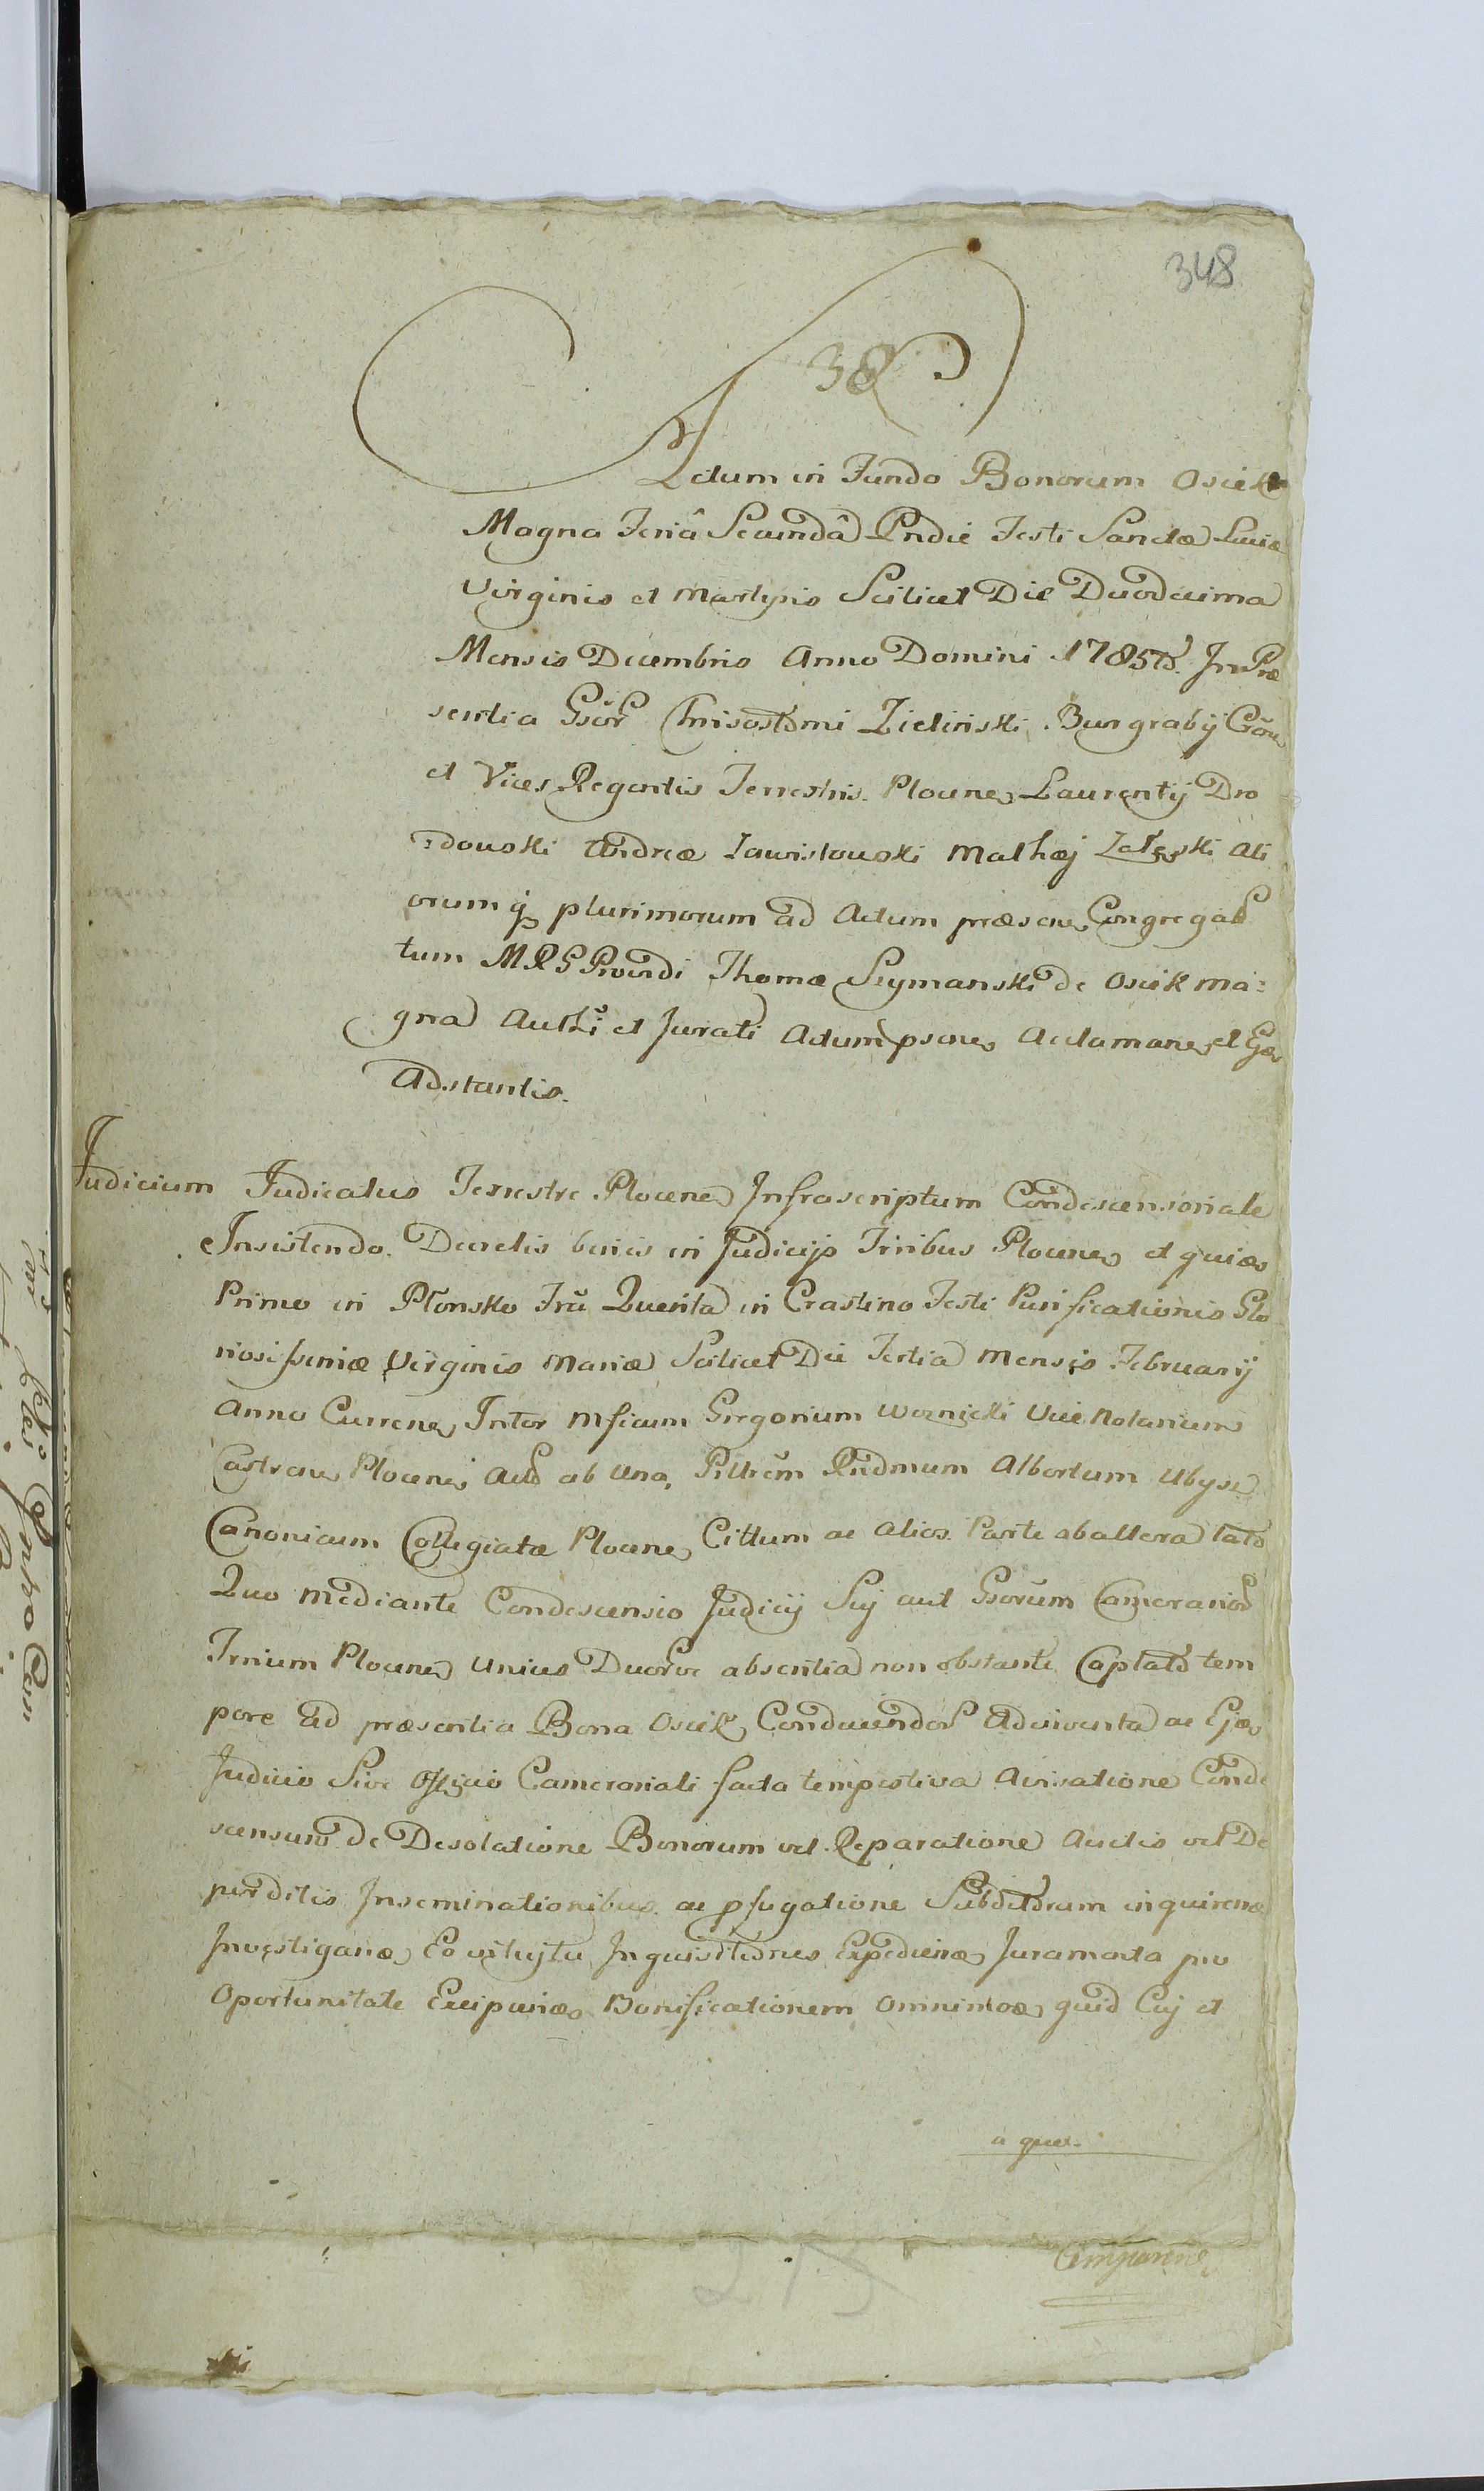 348
38
Actum in Fundo Bonorum Osiek
Magna Feriâ Secundâ Pridie Festi Sanctæ Luciæ
Virginis et Martyris Scilicet Die Duodecima
Mensis Decembris Anno Domini 1785to. In Præ
sentia Gsor Chrisostomi Zielinski Burgrabij
et Vices Regentis Terrestris Plocnes Laurentij Dro
zdowski Andreæ Zawistowski Mathæj Zaleski Ali
orumq plurimorum ad Actum præsens Congregat
tum MRS Providi Thomæ Szymanski de Osiek ma:
gna Authi et Jurati Actum psens Acclamanes et
Adstantis.
Judicium Judicatus Terrestre Plocnes Infrascriptum Condescensoriale
Insistendo Decretis binis in Judicijs Trribus Plocnes et quidem
Primo in Płonsko Fria Quinta in Crastino Festi Purificationis Glo
riosissimæ Virginis Mariæ Scilicet Die Tertia Mensis Februarij
Anno Currene Inter Mficum Gregorium Woznicki Vice Notarium
Castrene Plocnes ab una, Rndmum Albertum Ubysz
Canonicum Collegiatæ Plocnes Cittum ac alios Parte ab altera lato
Quo mediante Condescensio Judicij Sui aut Gsorum Camerarior
Trrium Plocnes Unius Duorve absentia non obstante Captato tem
pore ad præsentia Bona Osiek Conducendor Adinventa ac
Judicio Sive Officio Camerariali facta tempestiva Avisatione Conde
scensuro de Desolatione Bonorum vel Reparatione Auctis vel De
perditis Inseminationibus ac pfugatione Subditorum inquirend
Investigand Eo intuitu Inquisitiones Expediend Juramenta pro
Oportunitate Excipiend Bonificationem omnimod quid Cuj et
a quo